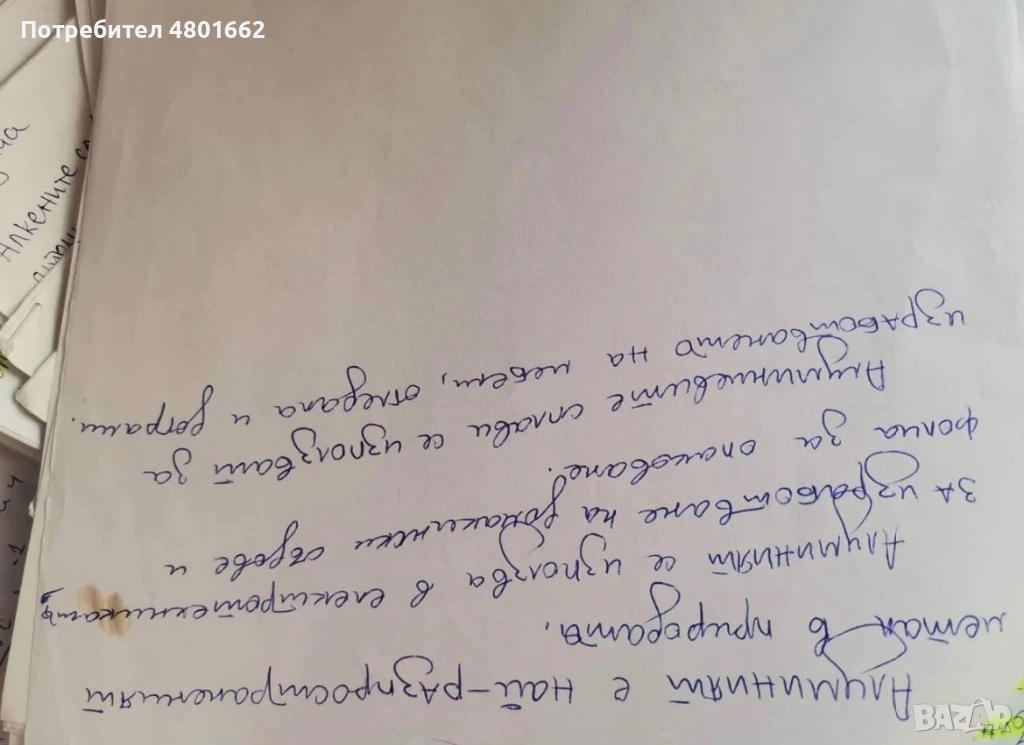 Потребител 4801662
Алуминият е най-разпространеният
метал в природата.
Алуминият се използва в електротехниката,
за изработване на домакински съдове и
фолиа за опаковане.
Алуминиевите сплави се използват за
изработването на мебели, огледала и дограми.
Алкените са
BAZAR